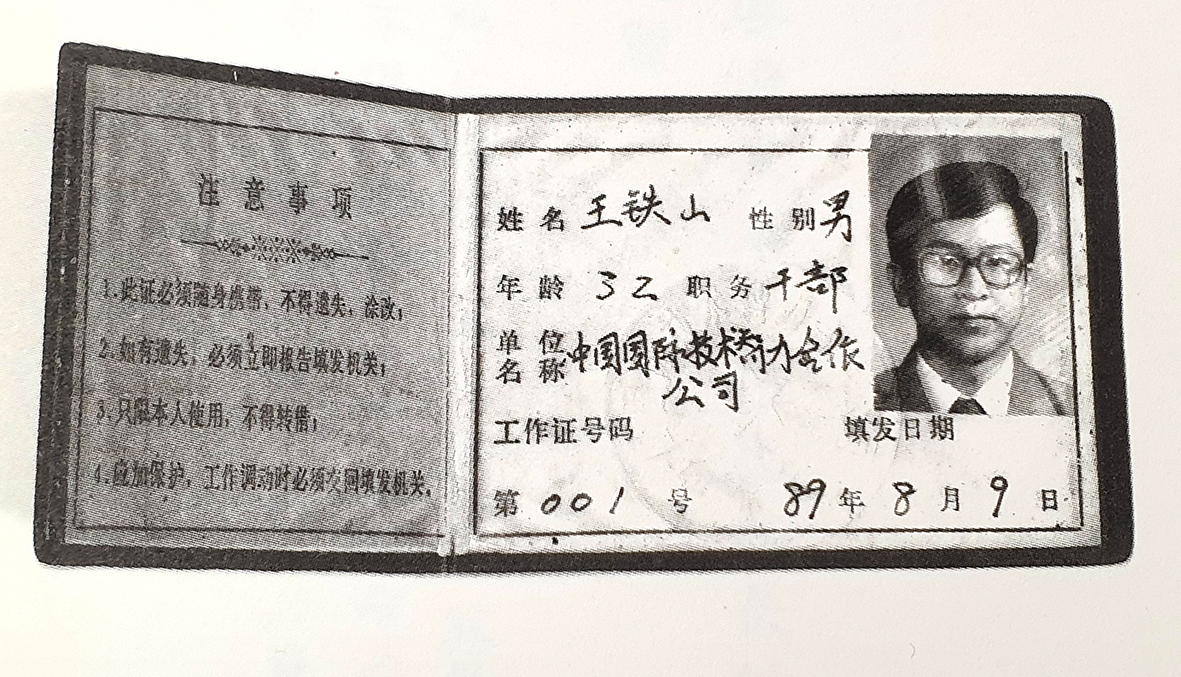 注意事项
1.此证必须随身携带，不得遗失，涂改；
2.如有遗失，必须立即报告填发机关；
3.只限本人使用，不得转借；
4.应加保护，工作调动时必须交回填发机关。
姓名 王铁山 性别 男
年龄 32 职务 干部
单位名称 中国国际技术合作
公司
工作证号码 填发日期
第 001 号 89 年 8 月 9 日